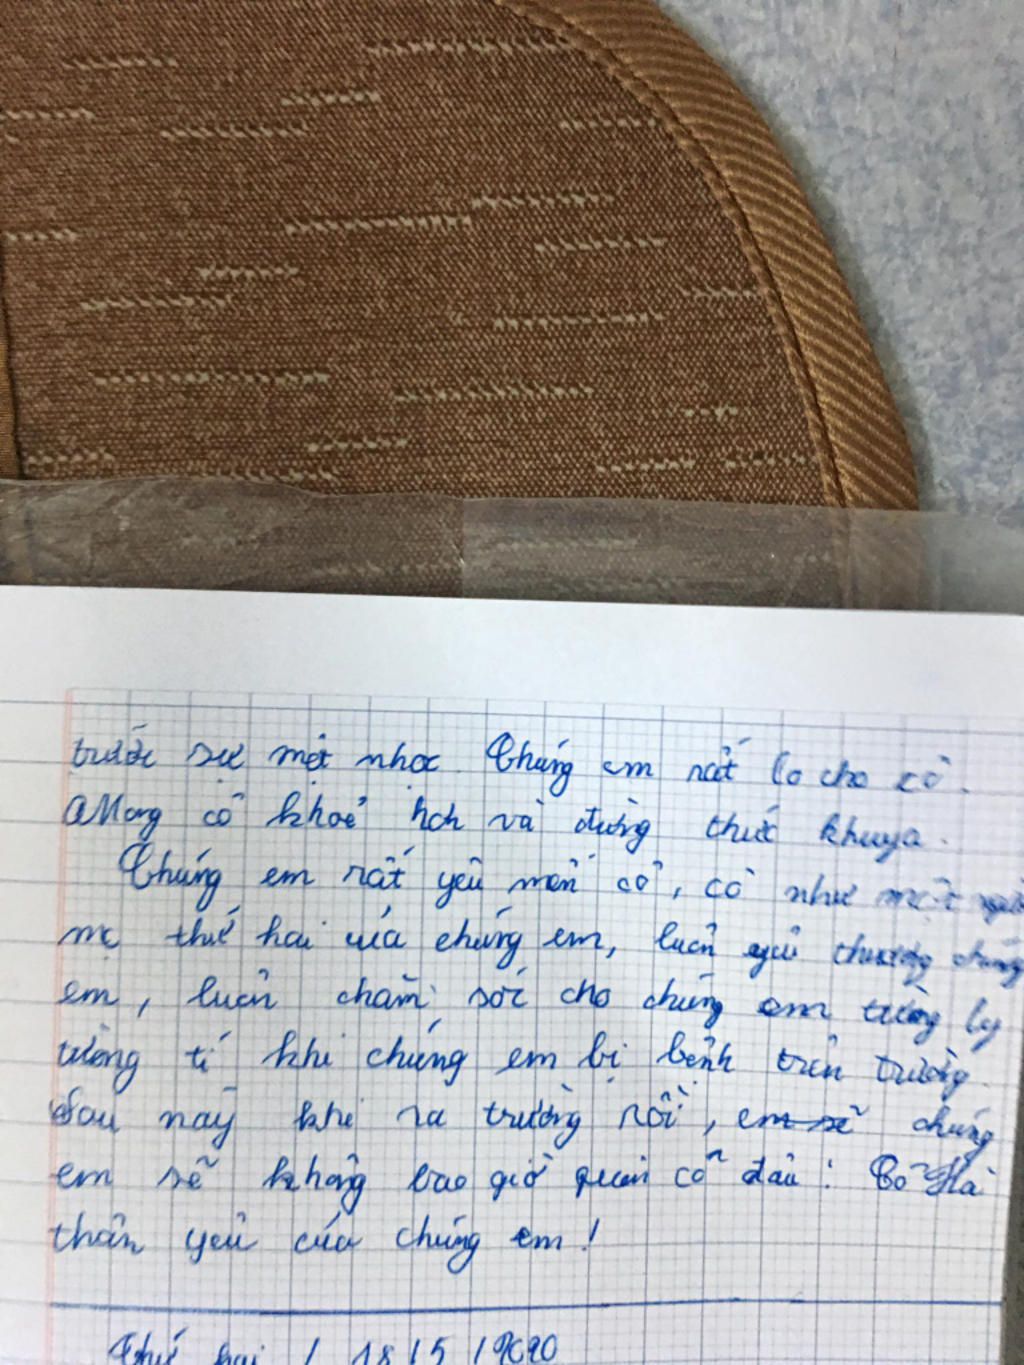 trước sự mệt nhọc. Chúng em rất lo cho cô.
Mong cô khoẻ hơn và đừng thức khuya.
Chúng em rất yêu mến cô, cô như một người
mẹ thứ hai của chúng em, luôn yêu thương chúng
em, luôn chăm sóc cho chúng em từng ly
từng tí khi chúng em bị bệnh trên trường.
Sau này khi ra trường rồi, em sẽ chúng
em sẽ không bao giờ quên cô đâu! Cô Hà
thân yêu của chúng em!
Thứ hai / 18 / 5 / 2020